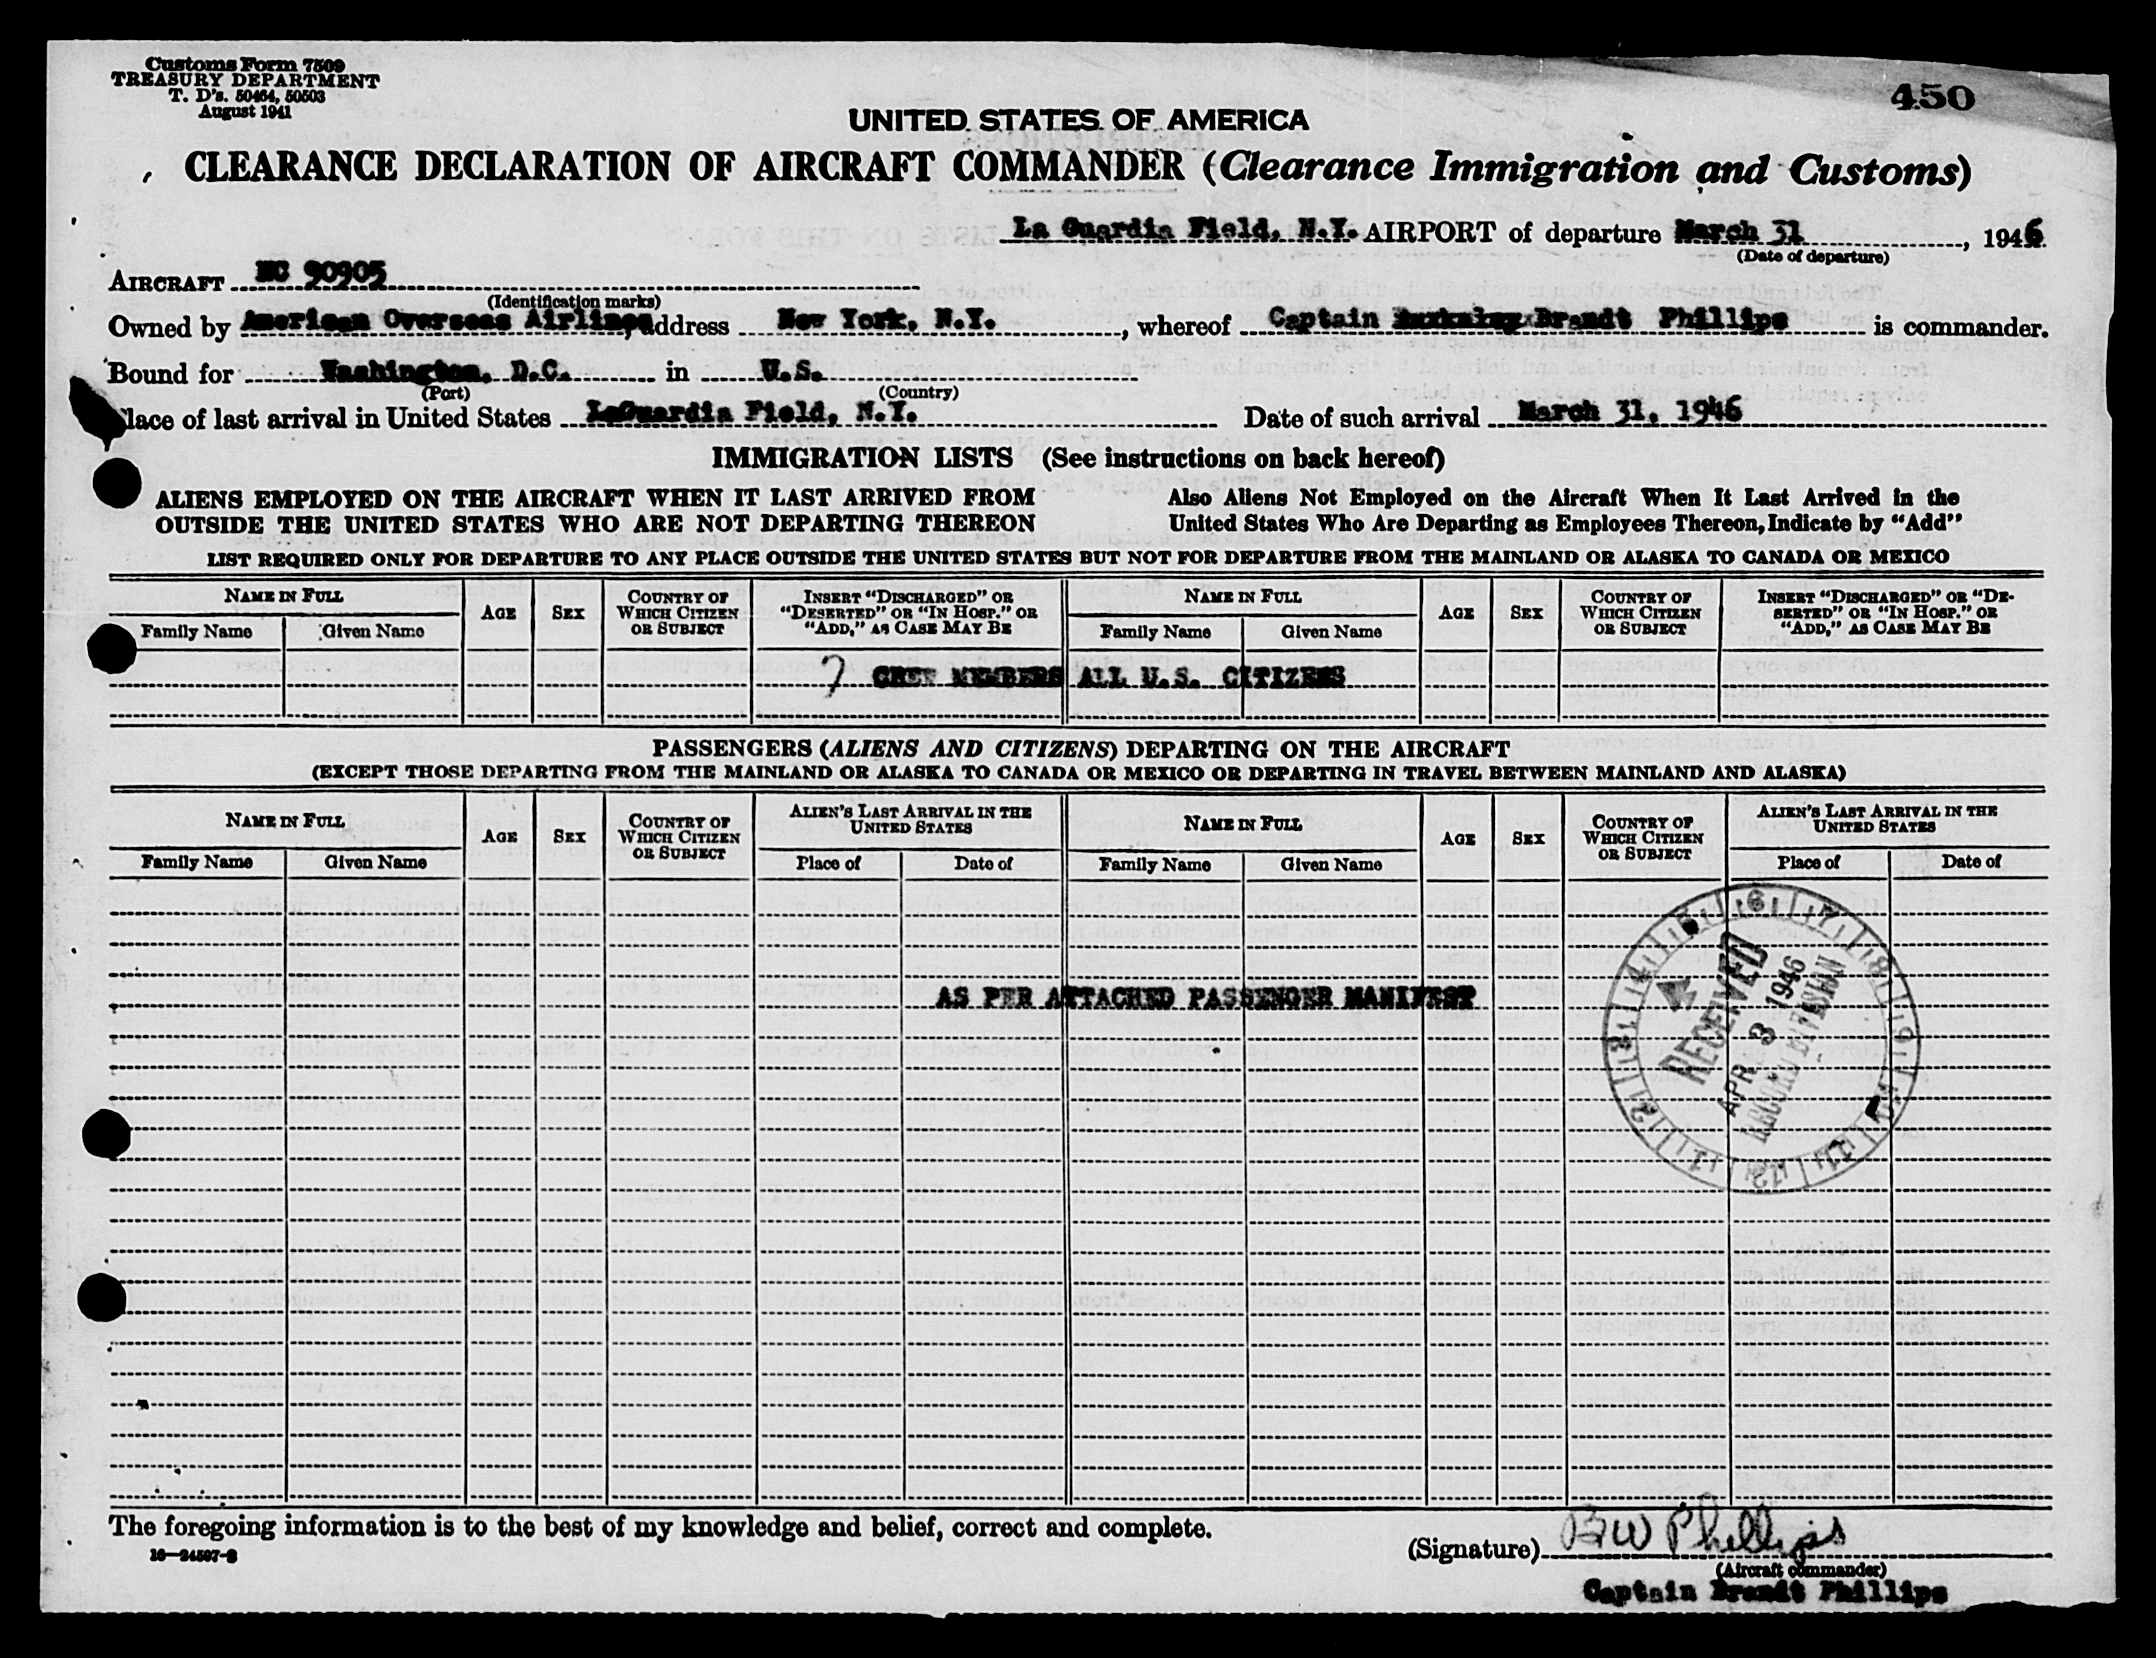 Customs Form 7509
TREASURY DEPARTMENT
T. D's. 50464, 50503
August 1941
450
UNITED STATES OF AMERICA
CLEARANCE DECLARATION OF AIRCRAFT COMMANDER (Clearance Immigration and Customs)
La Guardia Field, N.Y. AIRPORT of departure March 31, 1946
(Date of departure)
AIRCRAFT NC 90905
(Identification marks)
Owned by American Overseas Airlines, address New York, N.Y., whereof Captain Brandt Phillips is commander.
Bound for Washington, D.C. in U.S.
(Port) (Country)
Place of last arrival in United States LaGuardia Field, N.Y. Date of such arrival March 31, 1946
IMMIGRATION LISTS (See instructions on back hereof)
ALIENS EMPLOYED ON THE AIRCRAFT WHEN IT LAST ARRIVED FROM
OUTSIDE THE UNITED STATES WHO ARE NOT DEPARTING THEREON
Also Aliens Not Employed on the Aircraft When It Last Arrived in the
United States Who Are Departing as Employees Thereon, Indicate by "Add"
LIST REQUIRED ONLY FOR DEPARTURE TO ANY PLACE OUTSIDE THE UNITED STATES BUT NOT FOR DEPARTURE FROM THE MAINLAND OR ALASKA TO CANADA OR MEXICO
NAME IN FULL
Family Name Given Name
AGE
SEX
COUNTRY OF
WHICH CITIZEN
OR SUBJECT
INSERT "DISCHARGED" OR
"DESERTED" OR "IN HOSP." OR
"ADD," AS CASE MAY BE
NAME IN FULL
Family Name Given Name
AGE
SEX
COUNTRY OF
WHICH CITIZEN
OR SUBJECT
INSERT "DISCHARGED" OR "DE-
SERTED" OR "IN HOSP." OR
"ADD," AS CASE MAY BE
7 CREW MEMBERS ALL U.S. CITIZENS
PASSENGERS (ALIENS AND CITIZENS) DEPARTING ON THE AIRCRAFT
(EXCEPT THOSE DEPARTING FROM THE MAINLAND OR ALASKA TO CANADA OR MEXICO OR DEPARTING IN TRAVEL BETWEEN MAINLAND AND ALASKA)
NAME IN FULL
Family Name Given Name
AGE
SEX
COUNTRY OF
WHICH CITIZEN
OR SUBJECT
ALIEN'S LAST ARRIVAL IN THE
UNITED STATES
Place of Date of
NAME IN FULL
Family Name Given Name
AGE
SEX
COUNTRY OF
WHICH CITIZEN
OR SUBJECT
ALIEN'S LAST ARRIVAL IN THE
UNITED STATES
Place of Date of
AS PER ATTACHED PASSENGER MANIFEST
RECEIVED
APR 3 1946
RECORD DIVISION
1 2 3 4 5 6 7 8 9 10 11 12
The foregoing information is to the best of my knowledge and belief, correct and complete.
16—24507-2
(Signature) BW Phillips
(Aircraft commander)
Captain Brandt Phillips